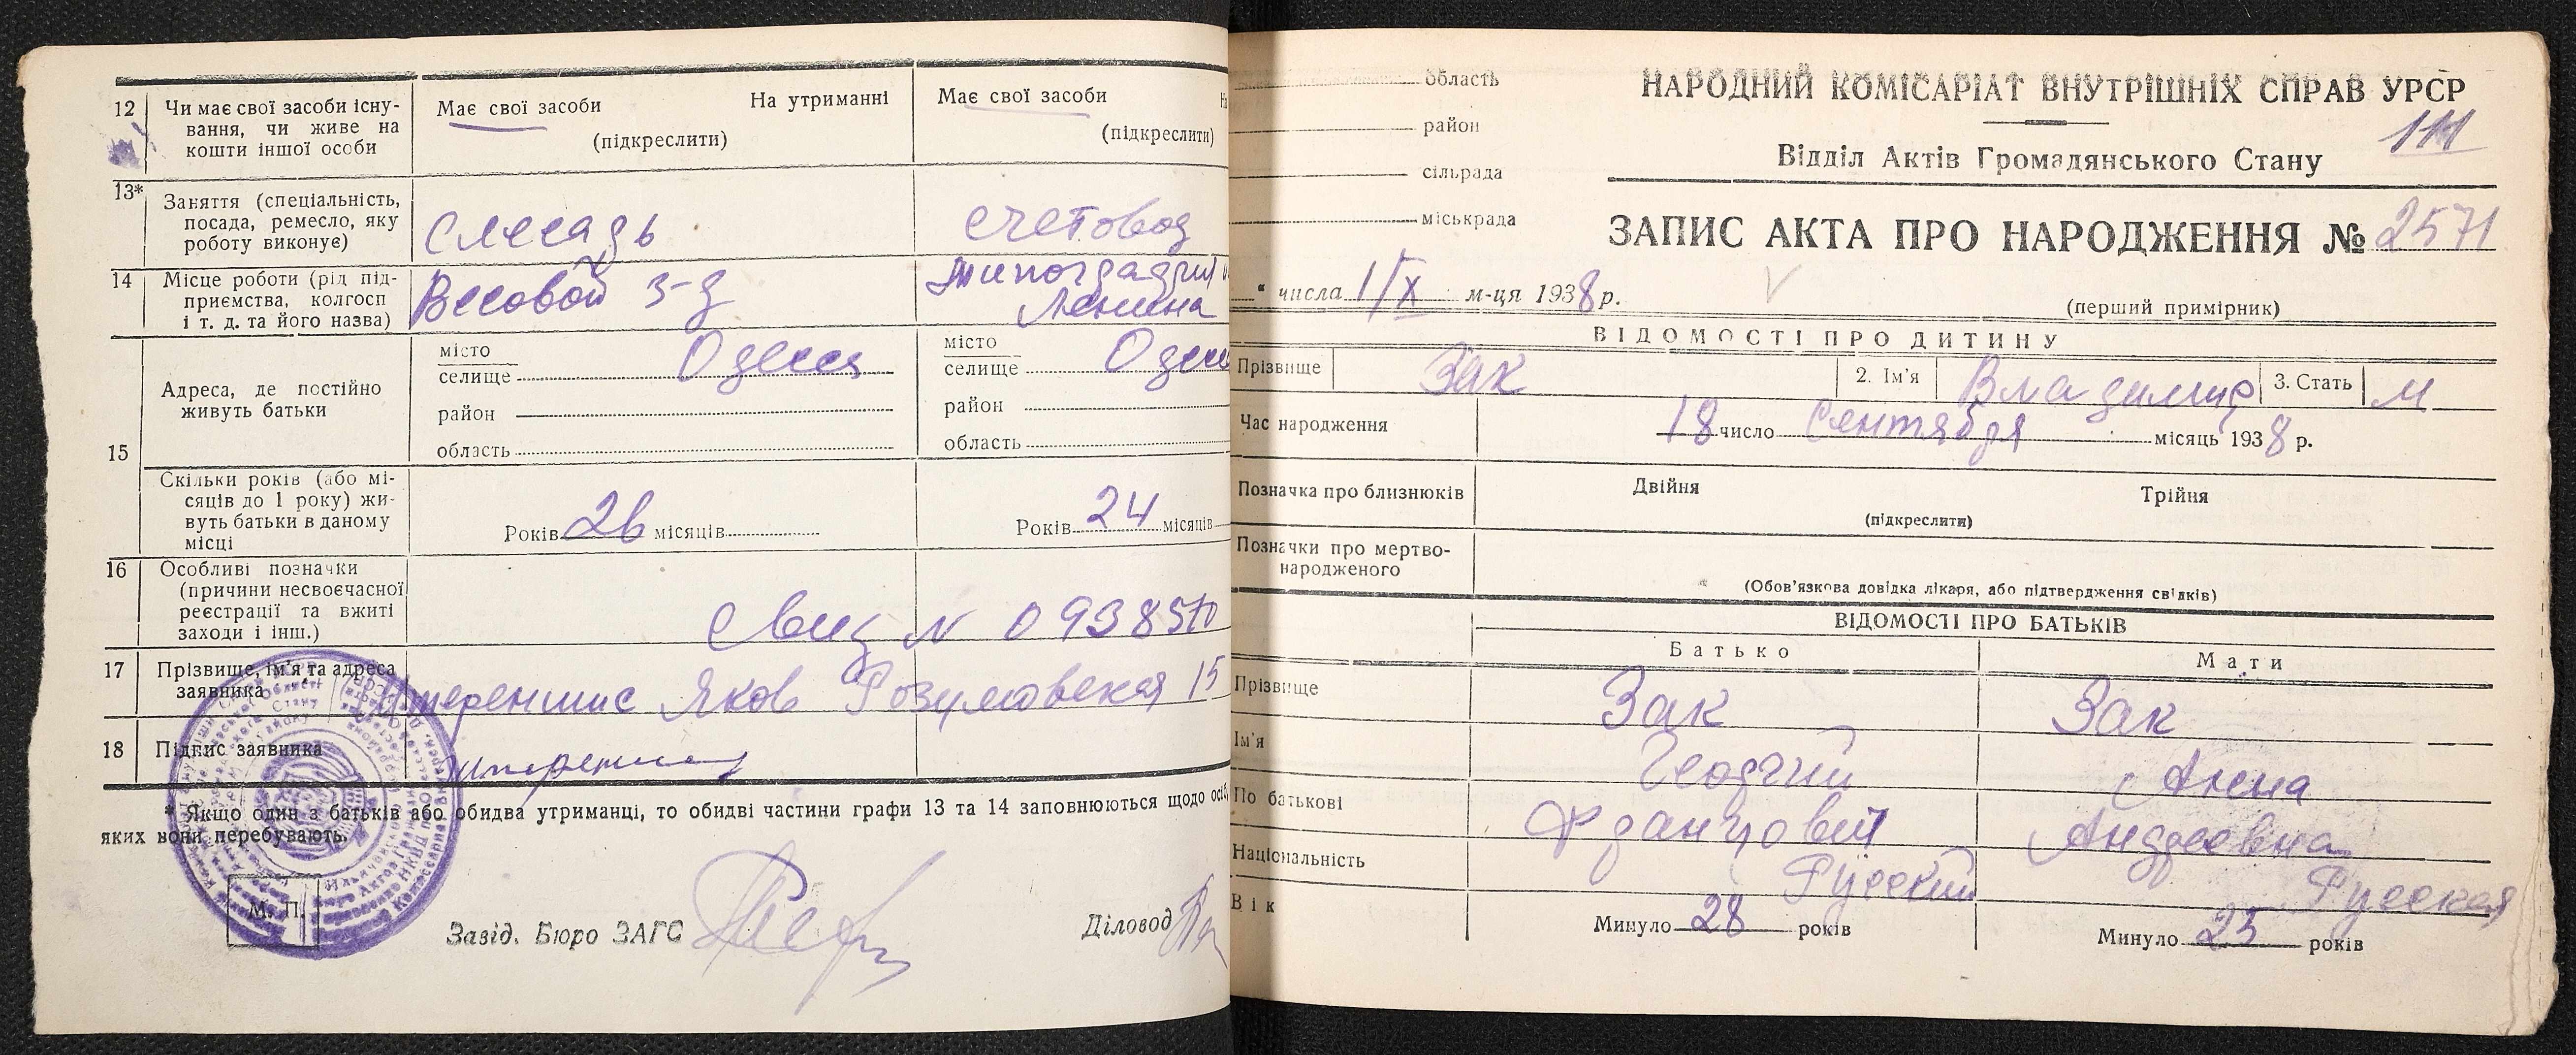 12 Чи має свої засоби існу-
вання, чи живе на
кошти іншої особи
Має свої засоби На утриманні
(підкреслити)
Має свої засоби
(підкреслити)
13* Заняття (спеціальність,
посада, ремесло, яку
роботу виконує)
Слесарь
Счетовод
14 Місце роботи (рід під-
приємства, колгосп
і т. д. та його назва)
Весовой з-д
Типография
Ленина
15 Адреса, де постійно
живуть батьки
місто Одесса
селище
район
область
місто Одесс
селище
район
область
Скільки років (або мі-
сяців до 1 року) жи-
вуть батьки в даному
місці
Років 26 місяців
Років 24 місяців
16 Особливі позначки
(причини несвоєчасної
реєстрації та вжиті
заходи і інш.)
Свид N 0938570
17 Прізвище, ім'я та адреса
заявника
Яков Розумовская 15
18 Підпис заявника
* Якщо один з батьків або обидва утриманці, то обидві частини графи 13 та 14 заповнюються щодо осіб,
яких вони перебувають.
М. П.
Завід. Бюро ЗАГС
Діловод
область
район
сільрада
міськрада
НАРОДНИЙ КОМІСАРІАТ ВНУТРІШНІХ СПРАВ УРСР
111
Відділ Актів Громадянського Стану
ЗАПИС АКТА ПРО НАРОДЖЕННЯ № 2571
" числа 1/X м-ця 1938 р.
(перший примірник)
ВІДОМОСТІ ПРО ДИТИНУ
Прізвище Зак 2. Ім'я Владимир 3. Стать М
Час народження 18 число Сентября місяць 1938 р.
Позначка про близнюків Двійня Трійня
(підкреслити)
Позначки про мертво-
народженого
(Обов'язкова довідка лікаря, або підтвердження свідків)
ВІДОМОСТІ ПРО БАТЬКІВ
Батько Мати
Прізвище Зак Зак
Ім'я Георгий Анна
По батькові Францович Андреевна
Національність Русский Русская
Вік Минуло 28 років Минуло 25 років